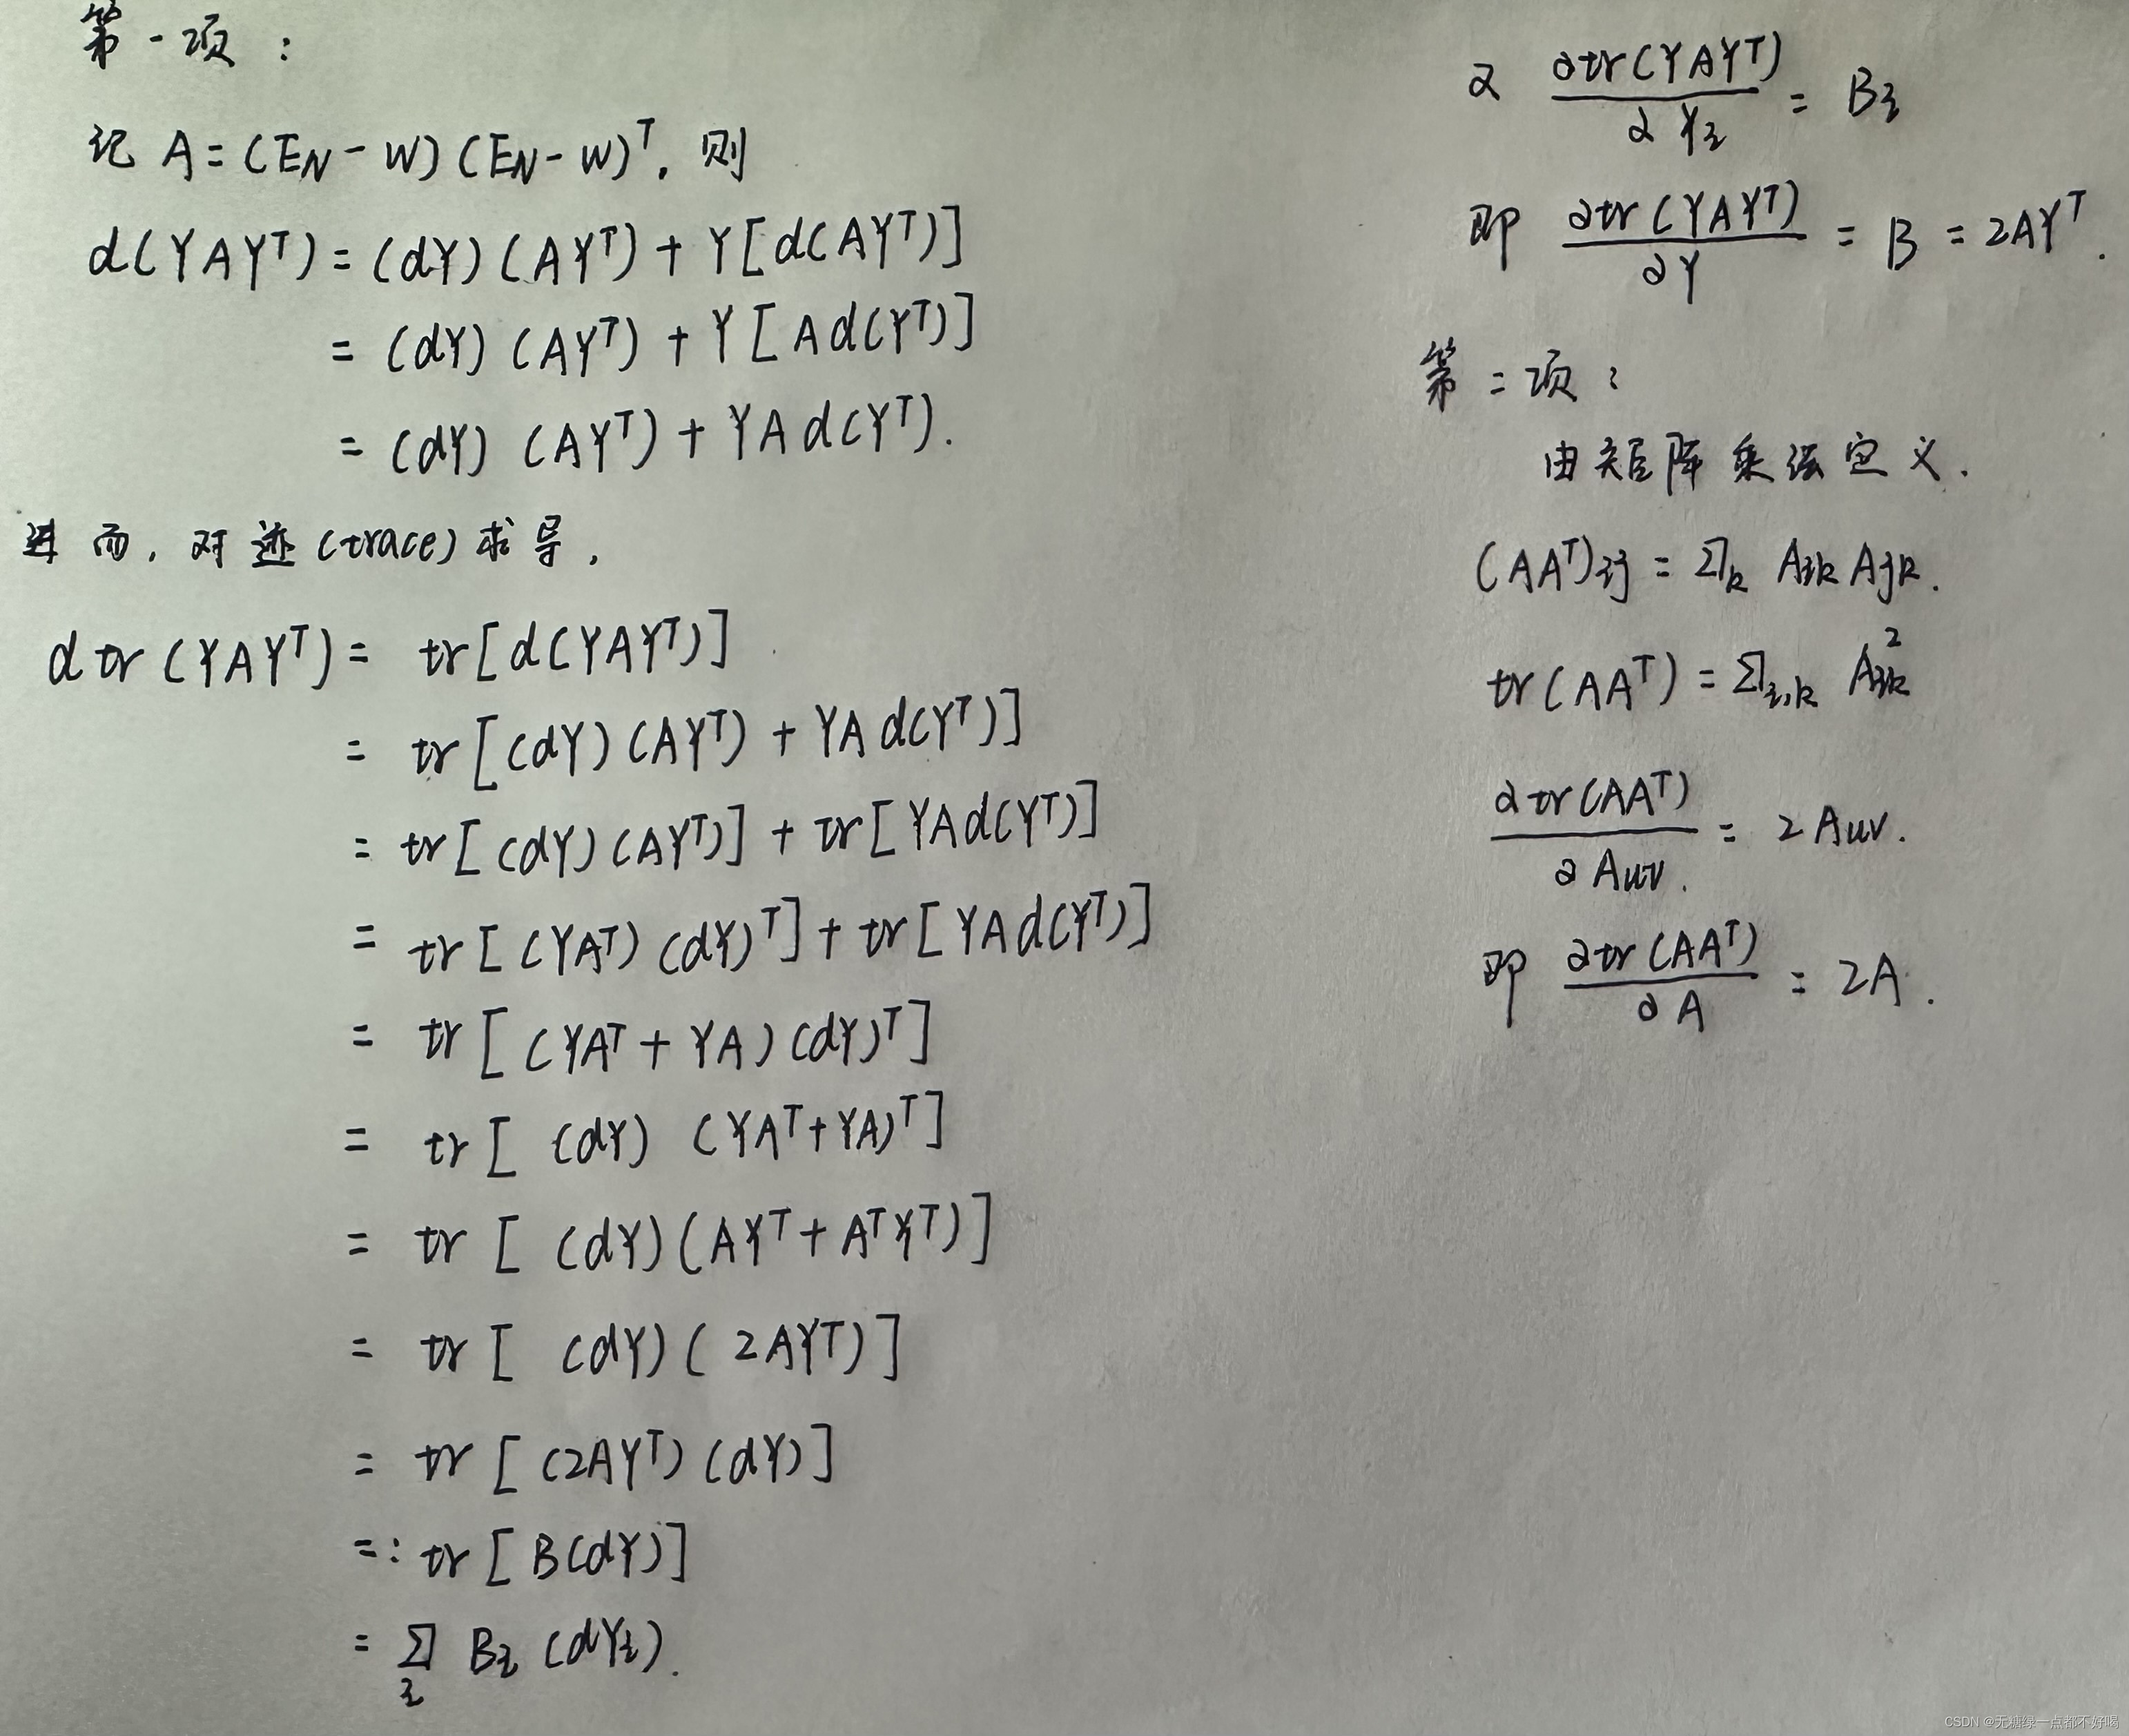 第一项：
记 A=(E_N-W)(E_N-W)^T, 则
d(YAY^T)=(dY)(AY^T)+Y[d(AY^T)]
=(dY)(AY^T)+Y[Ad(Y^T)]
=(dY)(AY^T)+YAd(Y^T).
进而, 对迹(trace)求导,
dtr(YAY^T)= tr[d(YAY^T)]
= tr[(dY)(AY^T)+YAd(Y^T)]
= tr[(dY)(AY^T)]+tr[YAd(Y^T)]
= tr[(YA^T)(dY)^T]+tr[YAd(Y^T)]
= tr[(YA^T+YA)(dY)^T]
= tr[(dY)(YA^T+YA)^T]
= tr[(dY)(AY^T+A^TY^T)]
= tr[(dY)(2AY^T)]
= tr[(2AY^T)(dY)]
=: tr[B(dY)]
= ∑_i B_i(dY_i).
∂tr(YAY^T)/∂Y_i = B_i
即 ∂tr(YAY^T)/∂Y = B = 2AY^T.
第二项：
由矩阵乘法定义.
(AA^T)_ij = ∑_k A_ik A_jk.
tr(AA^T)=∑_i,k A_ik^2
∂tr(AA^T)/∂A_uv. = 2A_uv.
即 ∂tr(AA^T)/∂A = 2A.
CSDN @无糖绿一点都不好喝